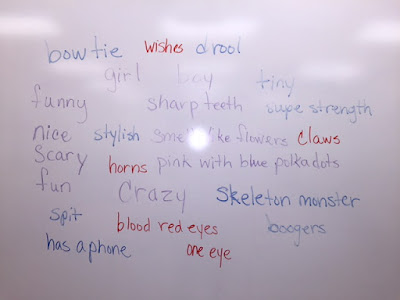 bow tie wishes drool
girl boy tiny
funny sharp teeth supe strength
nice stylish smell like flowers claws
scary horns pink with blue polkadots
fun crazy skeleton monster
spit blood red eyes boogers
has a phone one eye